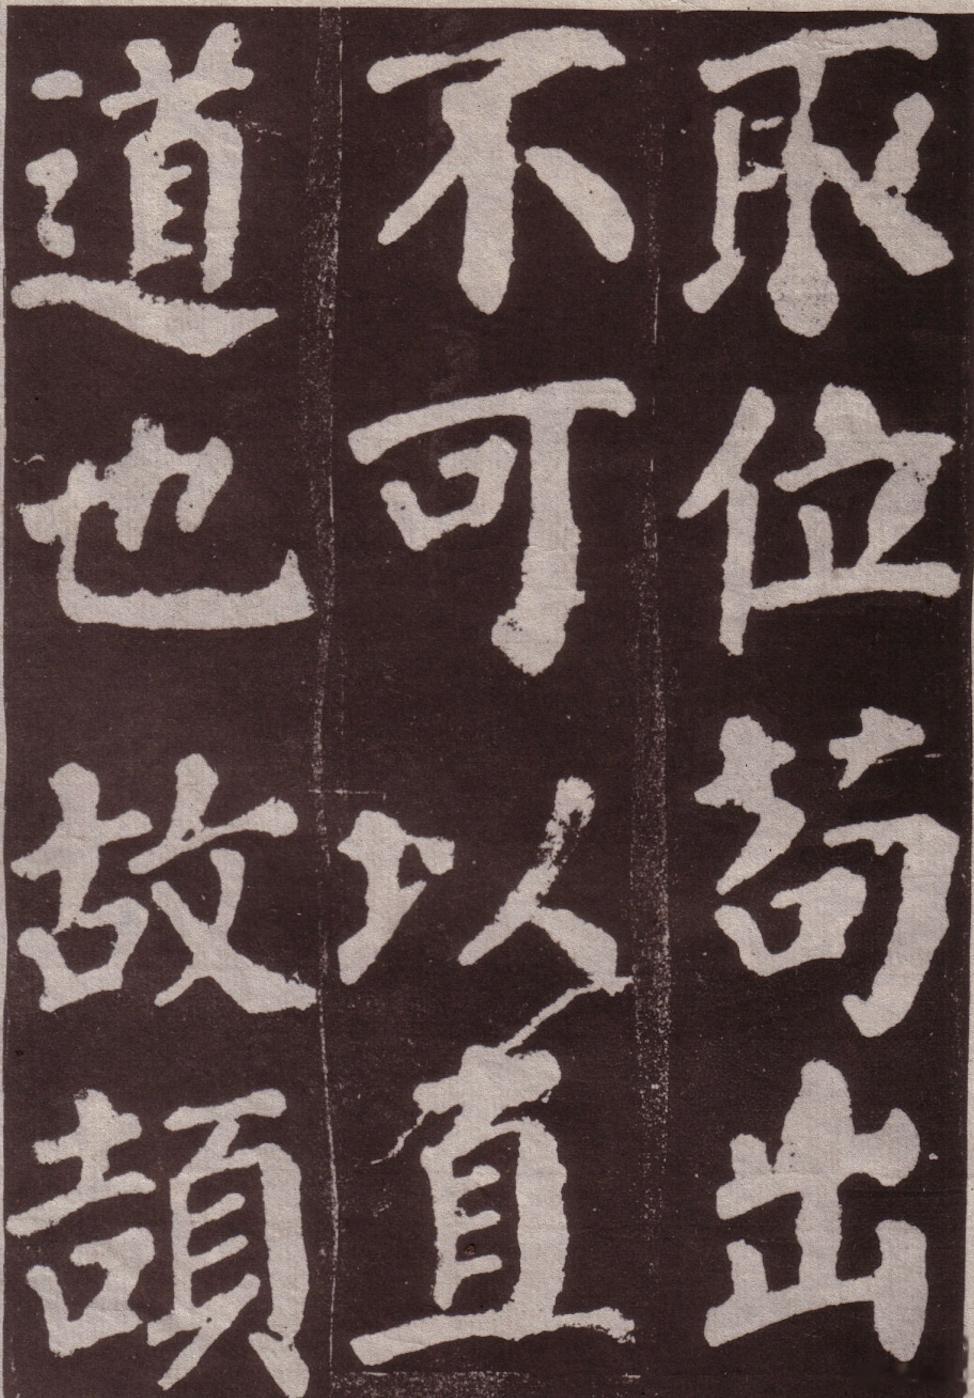 取位苟出
不可以直
道也故頡